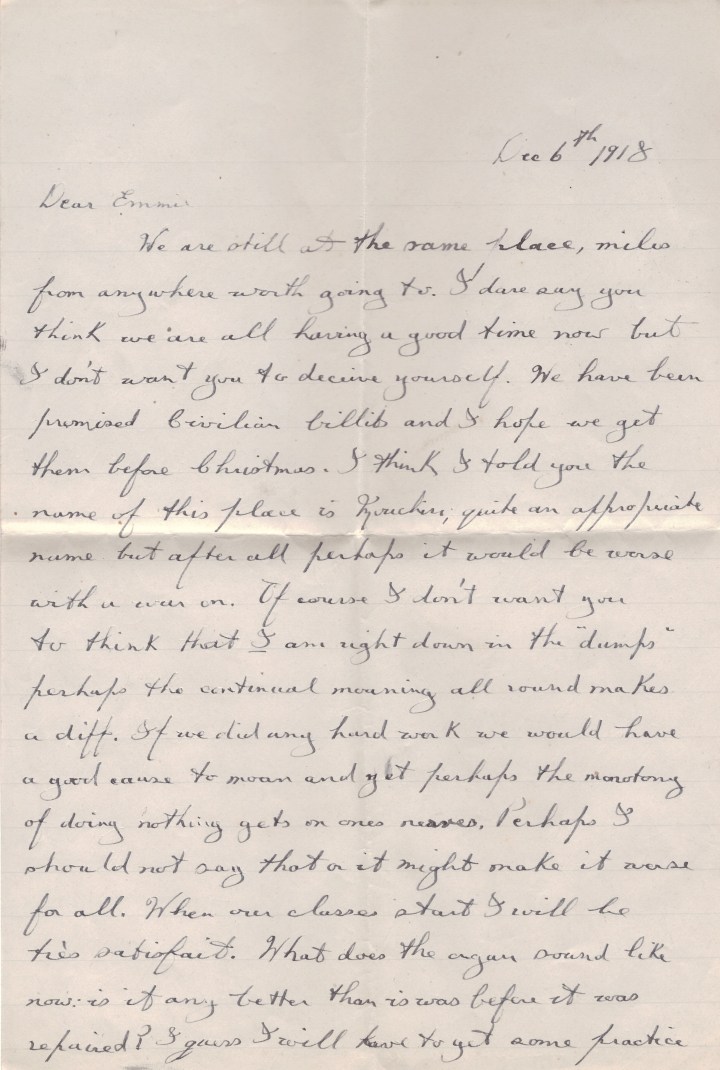 Dec 6th 1918
Dear Emmie
We are still at the same place, miles
from anywhere worth going to. I dare say you
think we are all having a good time now but
I don't want you to deceive yourself. We have been
promised Civilian billits and I hope we get
them before Christmas. I think I told you the
name of this place is quite an appropriate
name but after all perhaps it would be worse
with a war on. Of course I don't want you
to think that I am right down in the "dumps"
perhaps the continual mourning all round makes
a diff. If we did any hard work we would have
a good cause to moan and yet perhaps the monotony
of doing nothing gets on ones nerves. Perhaps I
should not say that or it might make it worse
for all. When our classes start I will be
très satisfait. What does the organ sound like
now: is it any better than is was before it was
repaired? I guess I will have to get some practice